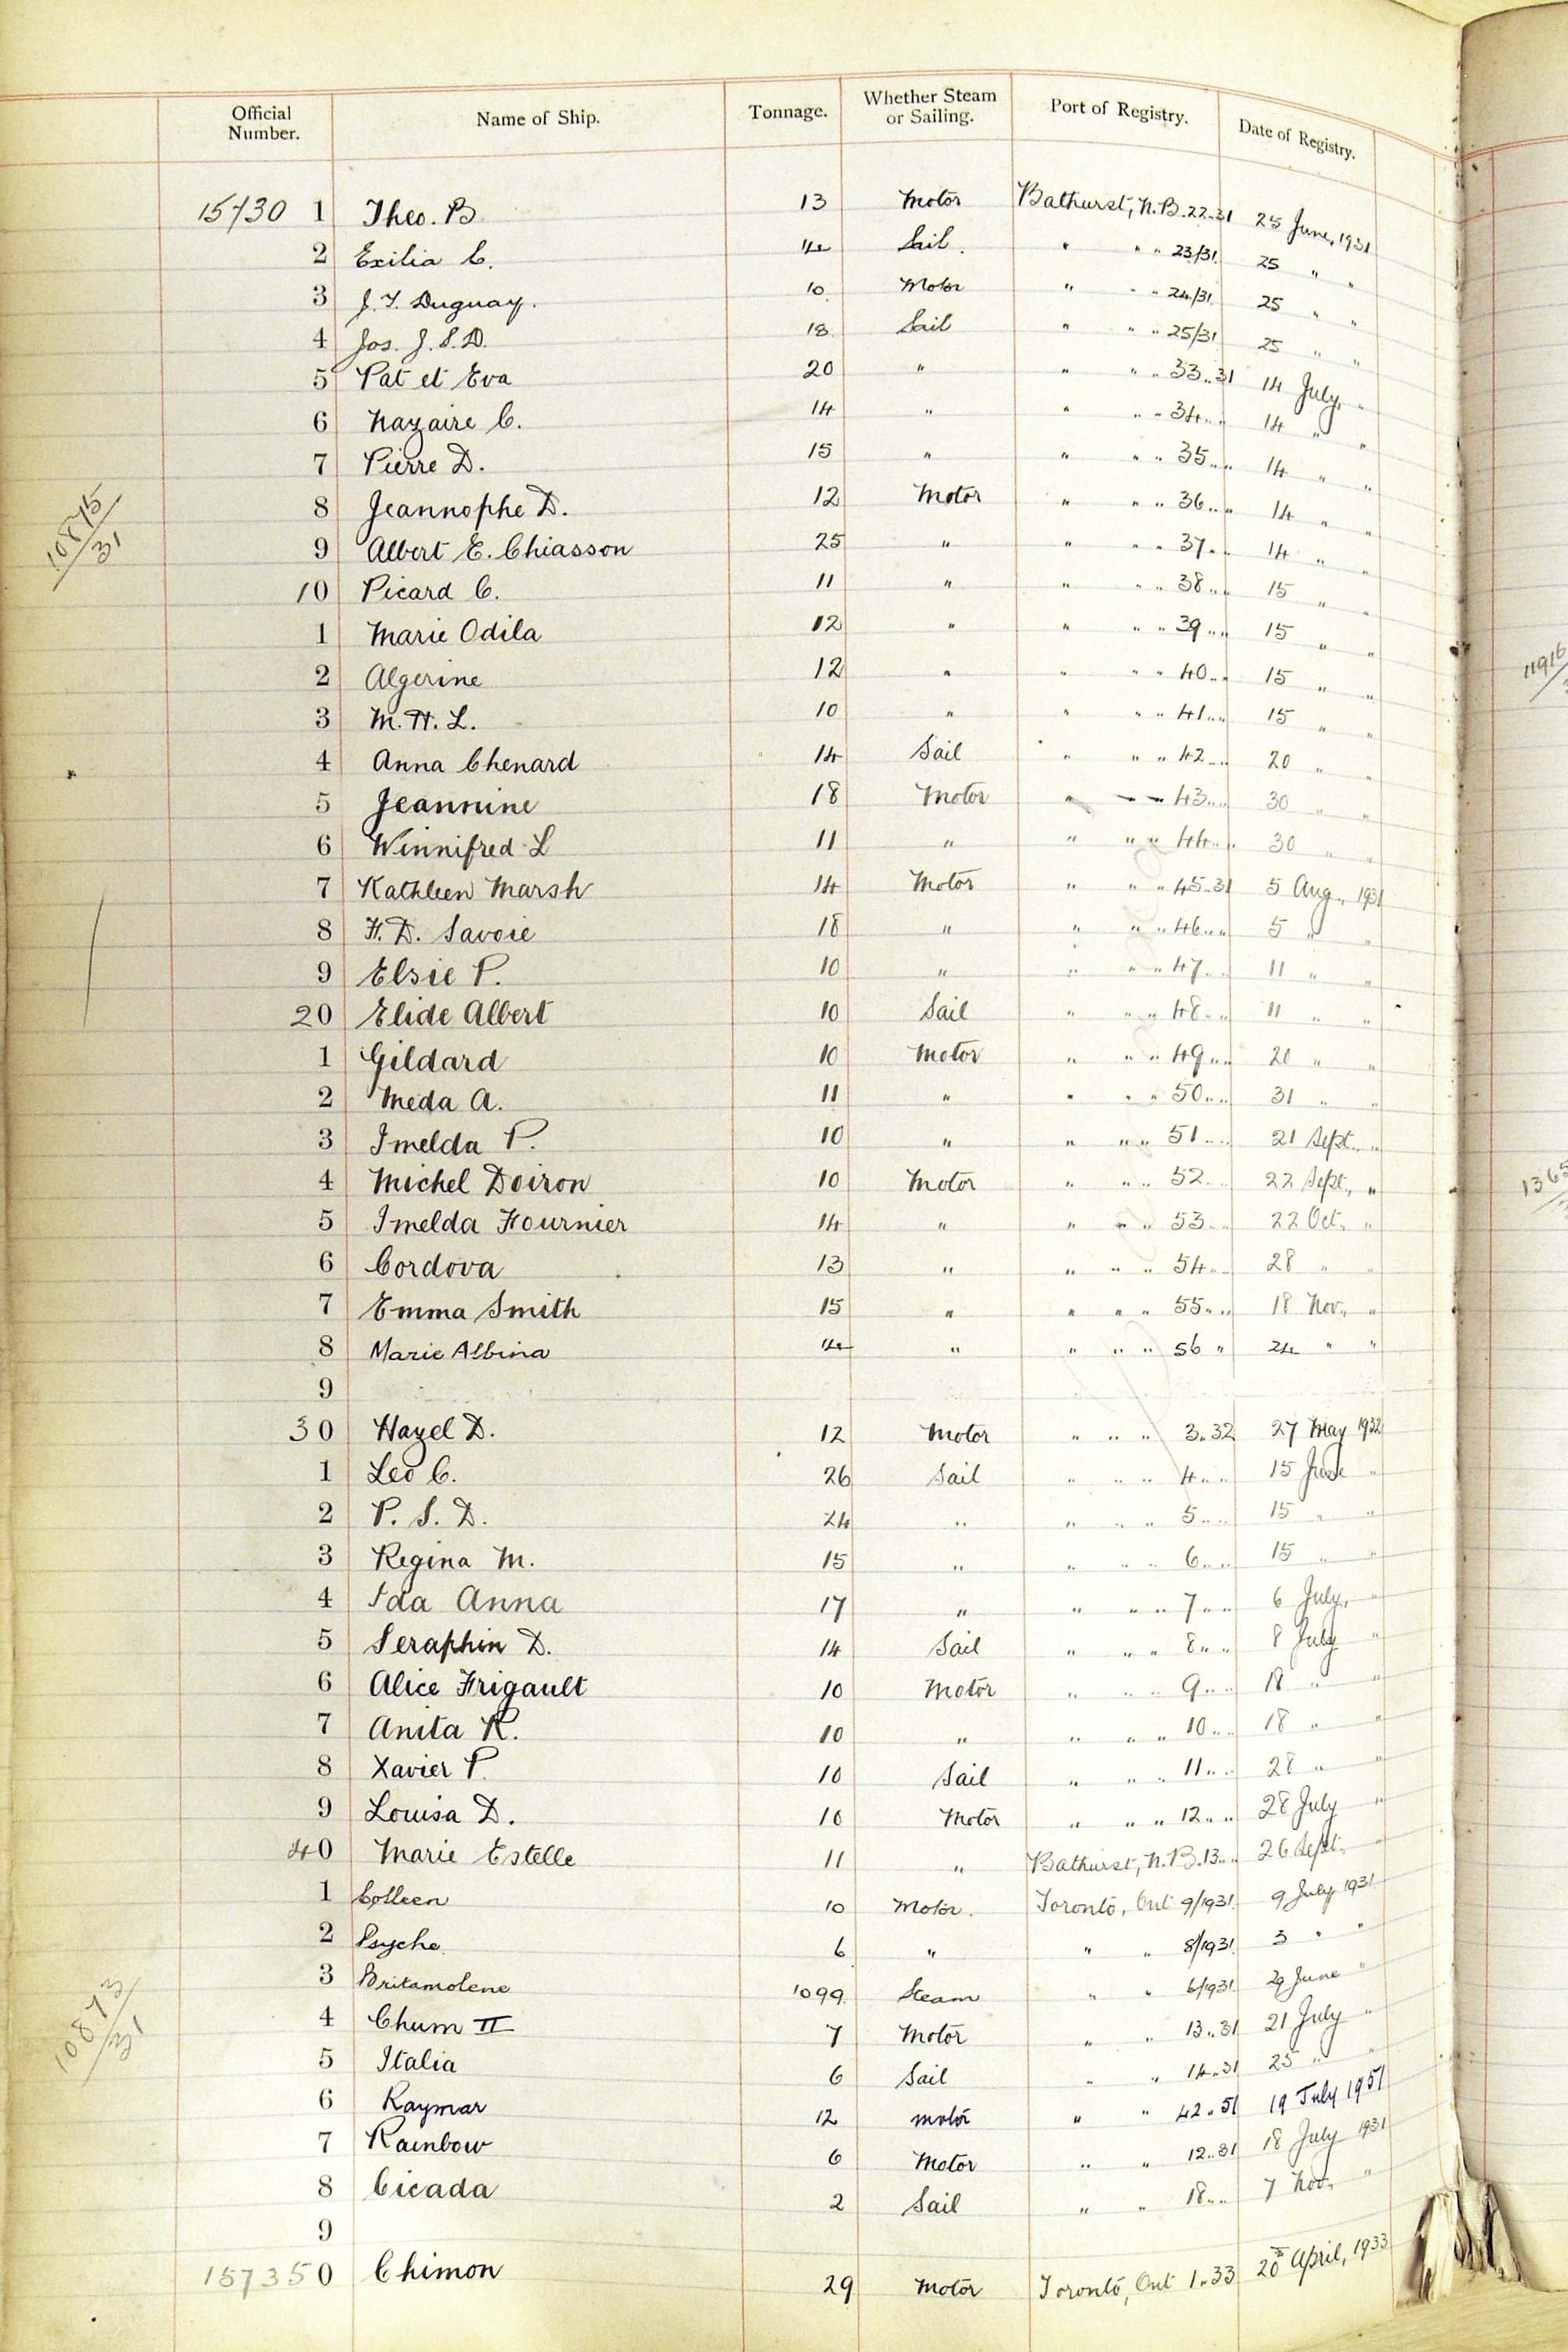 Official Number. Name of Ship. Tonnage. Whether Steam or Sailing. Port of Registry. Date of Registry.
15730 1 Theo. B 13 Motor Bathurst, N.B. 22.31 25 June, 1931
2 Exilia C. 14 Sail. " " " 23/31 25 " "
3 J. T. Duguay. 10 Motor " " " 24/31 25 " "
4 Jos. J. S. D. 18 Sail " " " 25/31 25 " "
5 Pat et Eva 20 " " " " 33..31 14 July, "
6 Nazaire C. 14 " " " " 34 " " 14 " "
7 Pierre D. 15 " " " " 35 " " 14 " "
10875/31
8 Jeannophe D. 12 Motor " " " 36 " " 14 " "
9 Albert E. Chiasson 25 " " " " 37 " " 14 " "
10 Picard C. 11 " " " " 38 " " 15 " "
1 Marie Odila 12 " " " " 39 " " 15 " "
2 Algerine 12 " " " " 40 " " 15 " "
3 M. H. L. 10 " " " " 41 " " 15 " "
4 Anna Chenard 14 Sail " " " 42 " " 20 " "
5 Jeannine 18 Motor " " " 43 " " 30 " "
6 Winnifred L 11 " " " " 44 " " 30 " "
7 Kathleen Marsh 14 Motor " " " 45.31 5 Aug., 1931
8 F. D. Savoie 18 " " " " 46 " " 5 " "
9 Elsie P. 10 " " " " 47 " " 11 " "
20 Elide Albert 10 Sail " " " 48 " " 11 " "
1 Gildard 10 Motor " " " 49 " " 20 " "
2 Meda A. 11 " " " " 50 " " 31 " "
3 Imelda P. 10 " " " " 51 " " 21 Sept., "
4 Michel Doiron 10 Motor " " " 52 " " 22 Sept., "
5 Imelda Fournier 14 " " " " 53 " " 22 Oct., "
6 Cordova 13 " " " " 54 " " 28 " "
7 Emma Smith 15 " " " " 55 " " 18 Nov., "
8 Marie Albina 14 " " " " 56 " 24 " "
9
30 Hazel D. 12 Motor " " " 3.32 27 May 1932
1 Leo C. 26 Sail " " " 4 " " 15 June "
2 P. S. D. 24 " " " " 5 " " 15 " "
3 Regina M. 15 " " " " 6 " " 15 " "
4 Ida Anna 17 " " " " 7 " " 6 July, "
5 Seraphin D. 14 Sail " " " 8 " " 8 July "
6 Alice Frigault 10 Motor " " " 9 " " 18 " "
7 Anita R. 10 " " " " 10 " " 18 " "
8 Xavier P. 10 Sail " " " 11 " " 28 " "
9 Louisa D. 10 Motor " " " 12 " " 28 July "
40 Marie Estelle 11 " Bathurst, N.B. 13 " " 26 Sept. "
1 Colleen 10 Motor. Toronto, Ont 9/1931. 9 July 1931
2 Psyche 6 " " " 8/1931. 3 " "
3 Britamolene 1099. Steam " " 6/1931. 29 June "
10873/31
4 Chum II 7 Motor " " 13..31 21 July "
5 Italia 6 Sail " " 14.31 25 " "
6 Raymar 12 motor " " 42.51 19 July 1951
7 Rainbow 6 Motor " " 12..31 18 July 1931
8 Cicada 2 Sail " " 18 " " 7 Nov. "
9
157350 Chimon 29 Motor Toronto, Ont 1.33 20 April, 1933